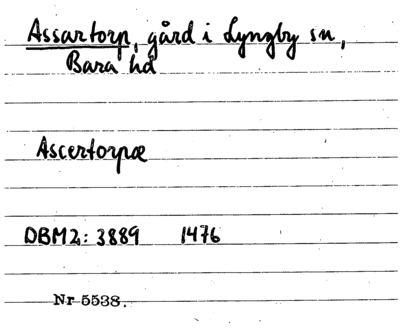 Assartorp, gård i Lyngby sn,
Bara hd
Ascertorpæ
DBM2: 3889 1476
Nr 5538.